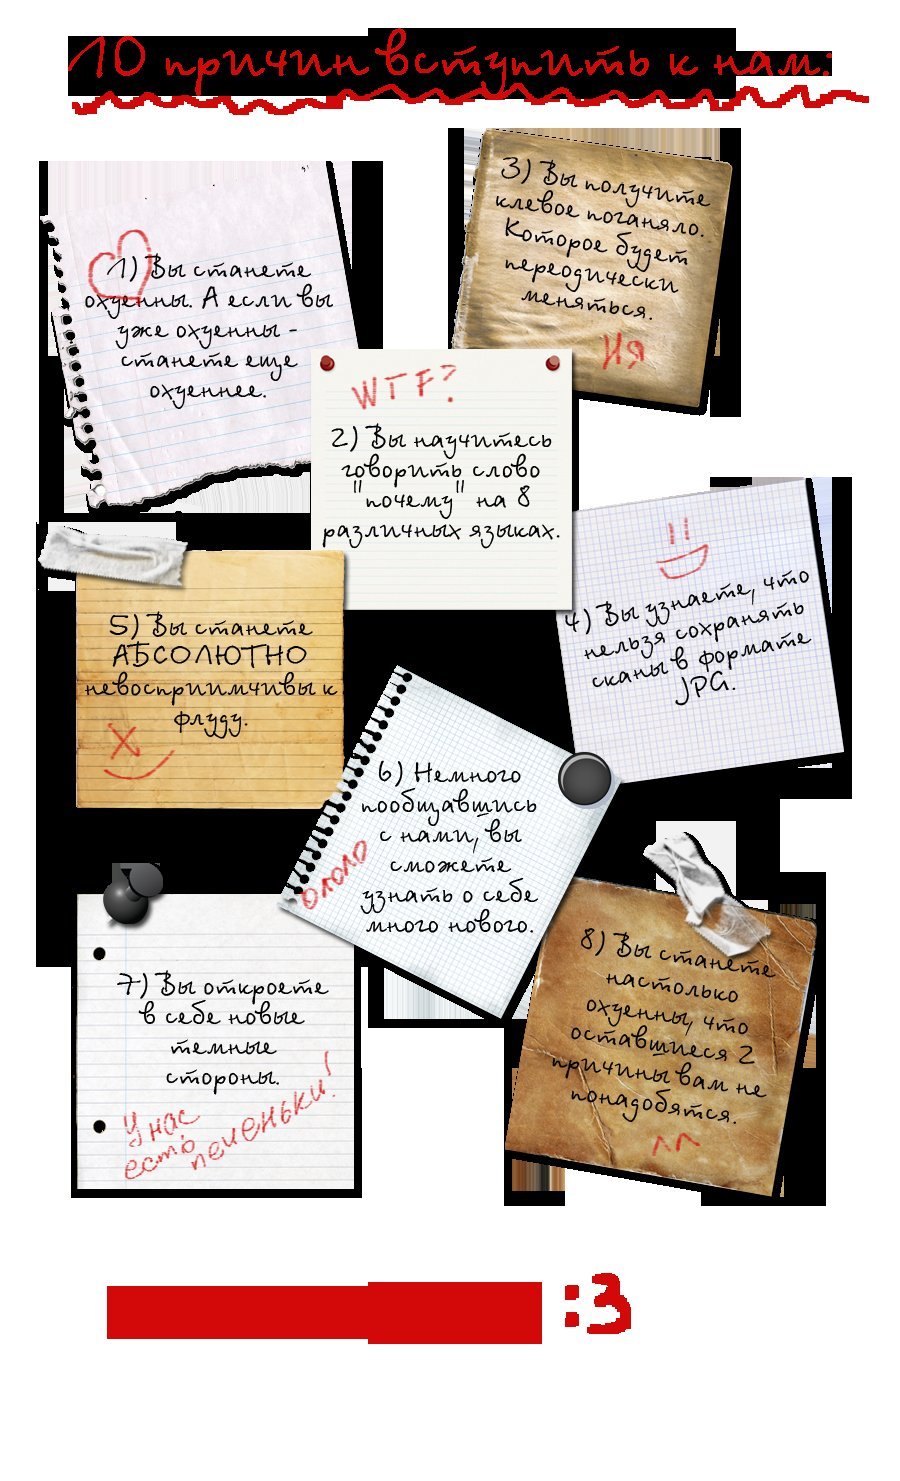 10 причин вступить к нам:
1) Вы станете
охуенны. А если вы
уже охуенны -
станете еще
охуеннее.
WTF?
2) Вы научитесь
говорить слово
"почему" на 8
различных языках.
3) Вы получите
клевое поганяло.
Которое будет
переодически
меняться.
Ия
4) Вы узнаете, что
нельзя сохранять
сканы в формате
JPG.
5) Вы станете
АБСОЛЮТНО
невосприимчивы к
флуду.
6) Немного
пообщавшись
с нами, вы
сможете
узнать о себе
много нового.
ололо
7) Вы откроете
в себе новые
темные
стороны.
У нас
есть печеньки!
8) Вы станете
настолько
охуенны, что
оставшиеся 2
причины вам не
понадобятся.
^^
:3